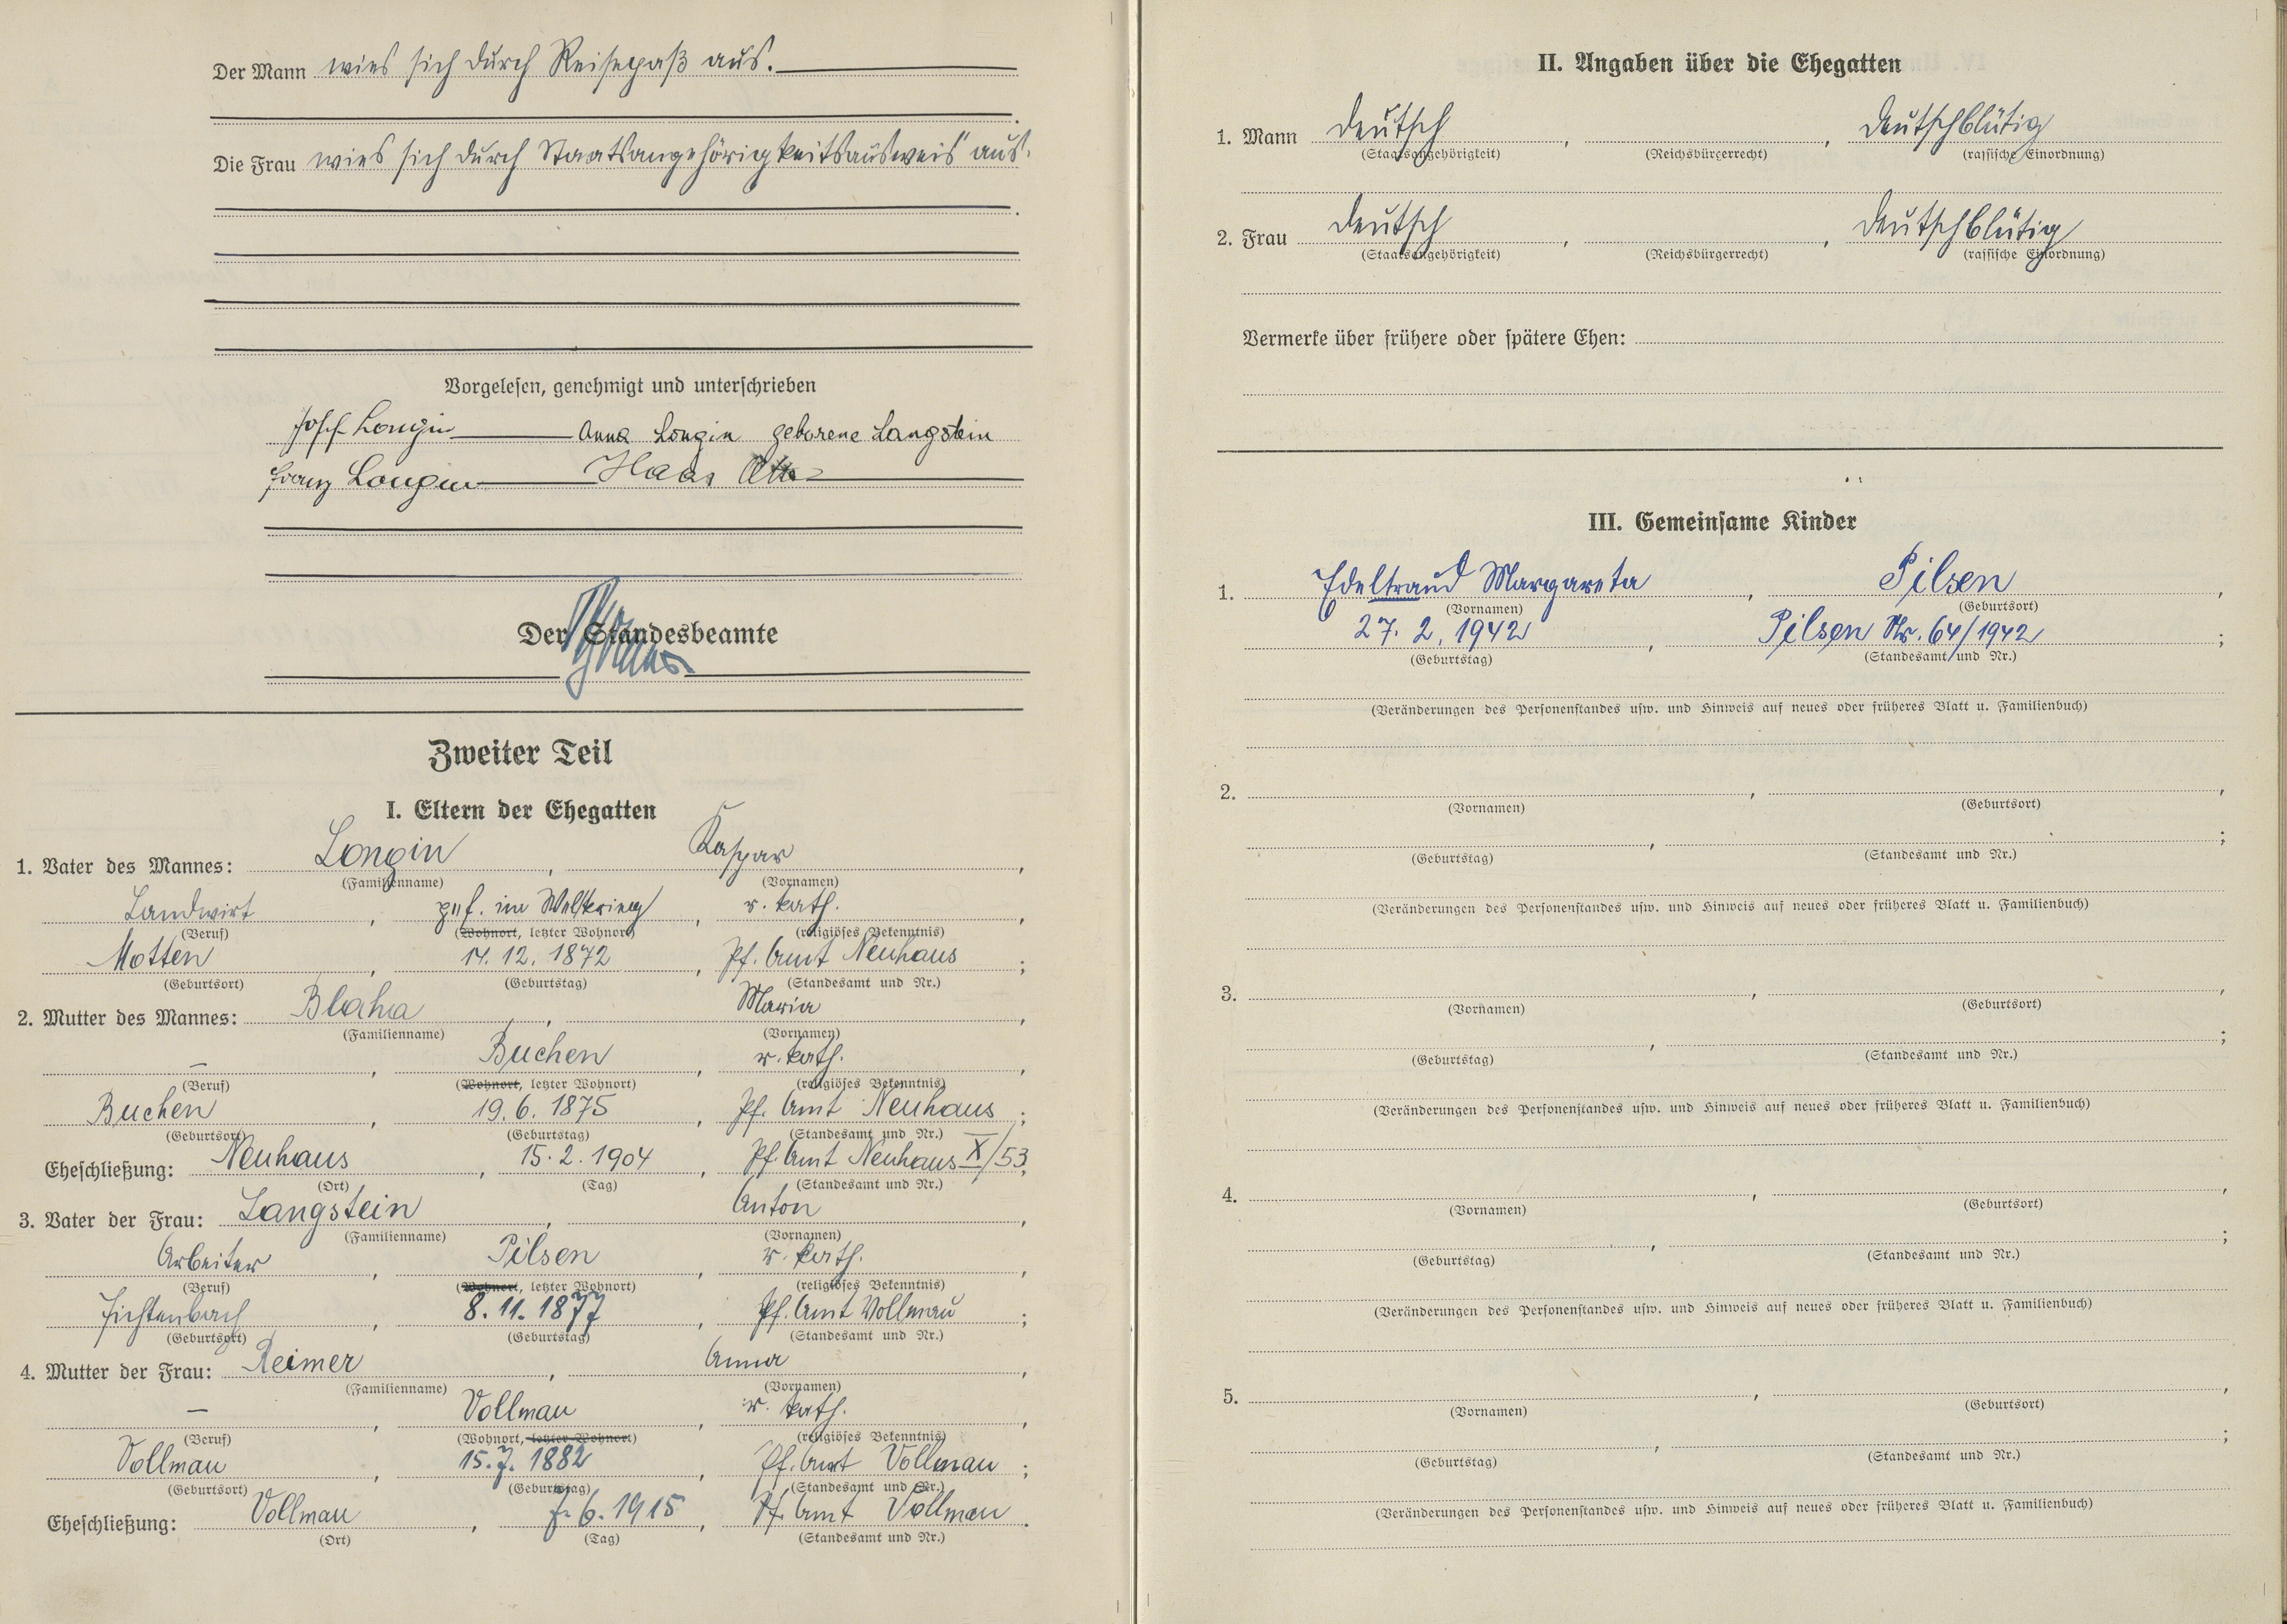 Der Mann wies sich durch Reisepaß aus.
Die Frau wies sich durch Staatsangehörigkeitsausweis aus.
Vorgelesen, genehmigt und unterschrieben
Josef Longin Anna Longin geborene Langstein
Franz Longin Haas Otto
Der Standesbeamte
Zweiter Teil
I. Eltern der Ehegatten
1. Vater des Mannes: Longin, Kaspar,
(Familienname) (Vornamen)
Landwirt, gef. im Weltkrieg, r. kath.,
(Beruf) (Wohnort, letzter Wohnort) (religiöses Bekenntnis)
Motten, 14. 12. 1872, Pf. Amt Neuhaus;
(Geburtsort) (Geburtstag) (Standesamt und Nr.)
2. Mutter des Mannes: Blaha, Maria,
(Familienname) (Vornamen)
–, Buchen, r. kath.,
(Beruf) (Wohnort, letzter Wohnort) (religiöses Bekenntnis)
Buchen, 19. 6. 1875, Pf. Amt Neuhaus;
(Geburtsort) (Geburtstag) (Standesamt und Nr.)
Eheschließung: Neuhaus, 15. 2. 1904, Pf. Amt Neuhaus X/53,
(Ort) (Tag) (Standesamt und Nr.)
3. Vater der Frau: Langstein, Anton,
(Familienname) (Vornamen)
Arbeiter, Pilsen, r. kath.,
(Beruf) (Wohnort, letzter Wohnort) (religiöses Bekenntnis)
Fichtenbach, 8. 11. 1877, Pf. Amt Vollmau;
(Geburtsort) (Geburtstag) (Standesamt und Nr.)
4. Mutter der Frau: Reimer, Anna,
(Familienname) (Vornamen)
–, Vollmau, r. kath.,
(Beruf) (Wohnort, letzter Wohnort) (religiöses Bekenntnis)
Vollmau, 15. 7. 1882, Pf. Amt Vollmau;
(Geburtsort) (Geburtstag) (Standesamt und Nr.)
Eheschließung: Vollmau, 7. 6. 1915, Pf. Amt Vollmau.
(Ort) (Tag) (Standesamt und Nr.)
II. Angaben über die Ehegatten
1. Mann deutsch, , deutschblütig
(Staatsangehörigkeit) (Reichsbürgerrecht) (rassische Einordnung)
2. Frau deutsch, , deutschblütig
(Staatsangehörigkeit) (Reichsbürgerrecht) (rassische Einordnung)
Vermerke über frühere oder spätere Ehen:
III. Gemeinsame Kinder
1. Edeltraud Margareta, Pilsen,
(Vornamen) (Geburtsort)
27. 2. 1942, Pilsen Nr. 64/1942;
(Geburtstag) (Standesamt und Nr.)
(Veränderungen des Personenstandes usw. und Hinweis auf neues oder früheres Blatt u. Familienbuch)
2. , ,
(Vornamen) (Geburtsort)
, ;
(Geburtstag) (Standesamt und Nr.)
(Veränderungen des Personenstandes usw. und Hinweis auf neues oder früheres Blatt u. Familienbuch)
3. , ,
(Vornamen) (Geburtsort)
, ;
(Geburtstag) (Standesamt und Nr.)
(Veränderungen des Personenstandes usw. und Hinweis auf neues oder früheres Blatt u. Familienbuch)
4. , ,
(Vornamen) (Geburtsort)
, ;
(Geburtstag) (Standesamt und Nr.)
(Veränderungen des Personenstandes usw. und Hinweis auf neues oder früheres Blatt u. Familienbuch)
5. , ,
(Vornamen) (Geburtsort)
, ;
(Geburtstag) (Standesamt und Nr.)
(Veränderungen des Personenstandes usw. und Hinweis auf neues oder früheres Blatt u. Familienbuch)